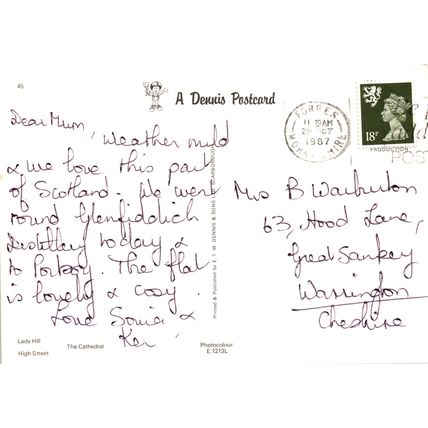 45
A Dennis Postcard
Dear Mum,
Weather mild
& we love this part
of Scotland. We went
round Glenfiddich
Distillery today &
to Portsoy. The flat
is lovely & cosy.
Love Sonia &
Ken
Lady Hill
The Cathedral
High Street
Photocolour
E.1213L
Printed & Published by E. T. W. DENNIS & SONS LTD. SCARBOROUGH
FORRES
11 30AM
29 OCT
1987
MORAYSHIRE
18P
POST
Mrs B Warburton
63, Hood Lane,
Great Sankey
Warrington
Cheshire